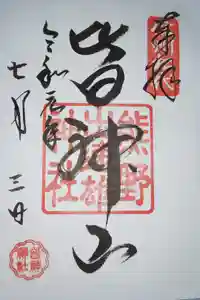 奉拝
皆神山
熊野
出速雄
神社
令和元年
七月三日